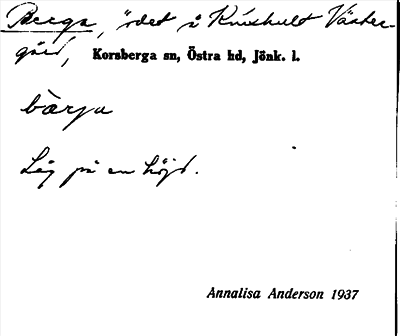 Berga, ödet å Knishult Väster-
gård, Korsberga sn, Östra hd, Jönk. l.
bærja
Låg på en höjd.
Annalisa Anderson 1937